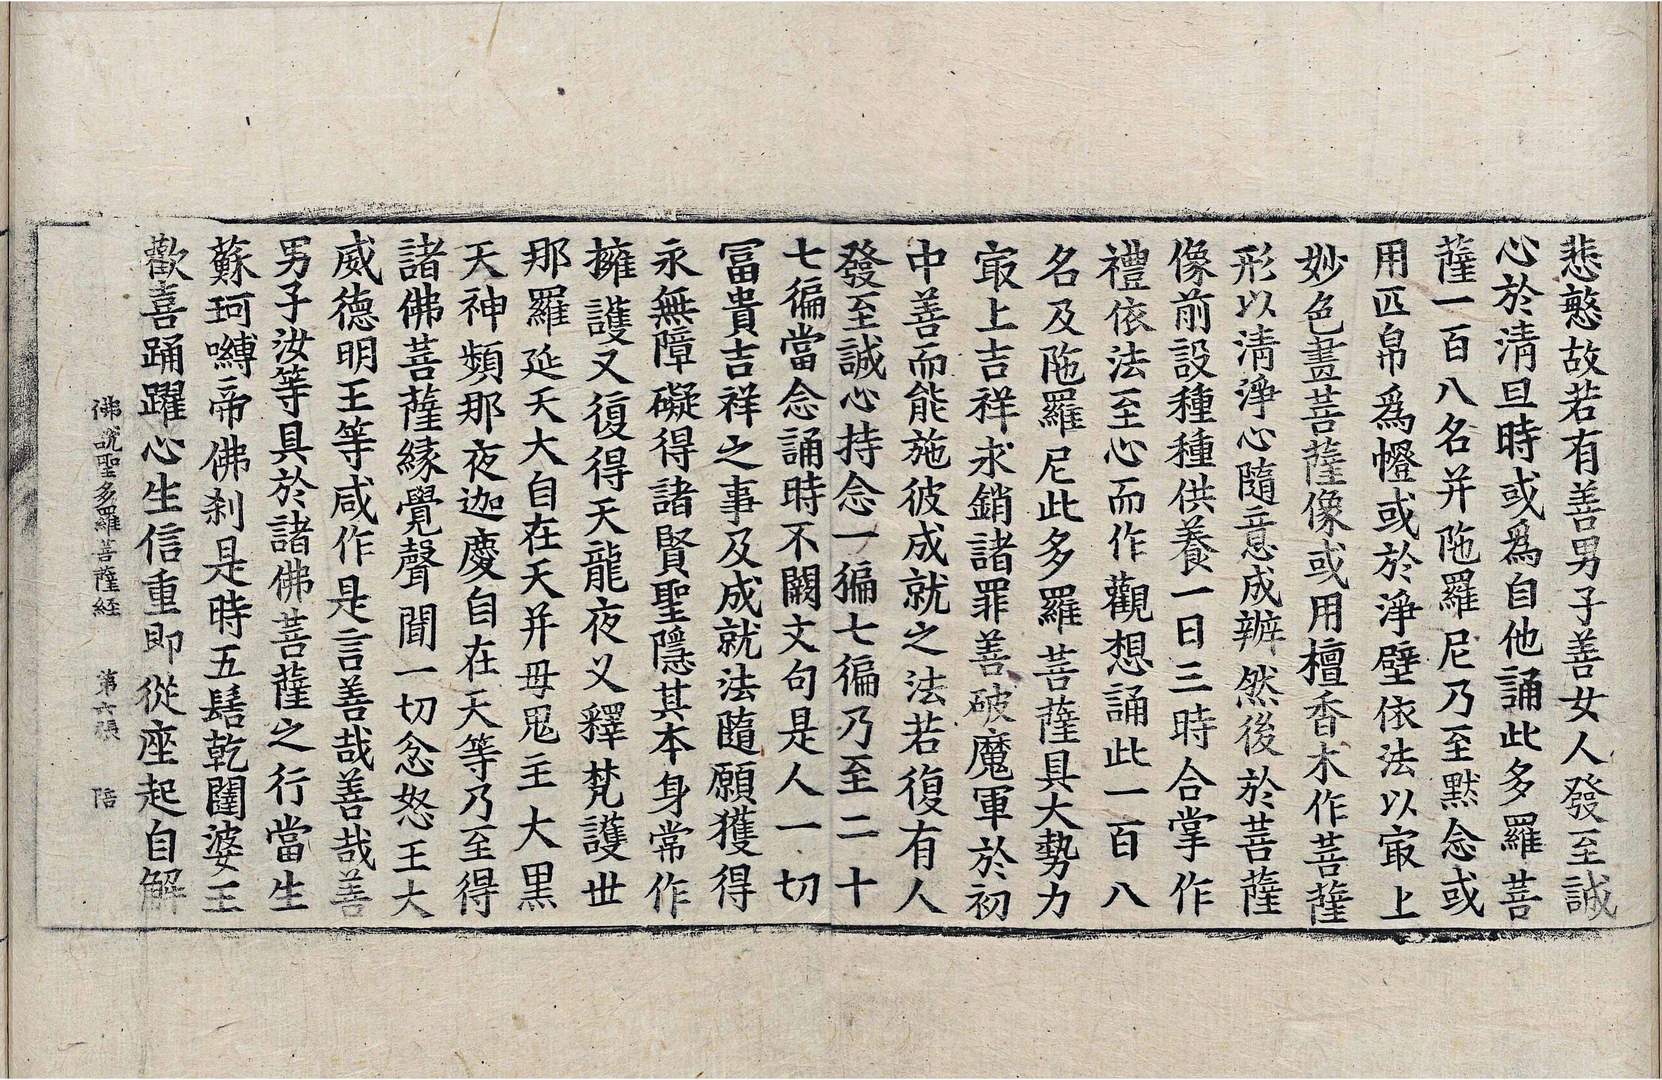 悲愍故若有善男子善女人發至誠
心於清旦時或爲自他誦此多羅菩
薩一百八名并陁羅尼乃至默念或
用匹帛爲幀或於淨壁依法以㝡上
妙色畫菩薩像或用檀香木作菩薩
形以清淨心隨意成辦然後於菩薩
像前設種種供養一日三時合掌作
禮依法至心而作觀想誦此一百八
名及陁羅尼此多羅菩薩具大勢力
㝡上吉祥求銷諸罪善破魔軍於初
中善而能施彼成就之法若復有人
發至誠心持念一徧七徧乃至二十
七徧當念誦時不闕文句是人一切
冨貴吉祥之事及成就法隨願獲得
永無障礙得諸賢聖隱其本身常作
擁護又復得天龍夜叉釋梵護世
那羅延天大自在天并毋鬼主大黒
天神頻那夜迦慶自在天等乃至得
諸佛菩薩縁覺聲聞一切忿怒王大
威德明王等咸作是言善哉善哉善
男子汝等具於諸佛菩薩之行當生
蘇珂嚩帝佛刹是時五髻乾闥婆王
歡喜踊躍心生信重即從座起自解
佛說聖多羅菩薩経 第六張 陪